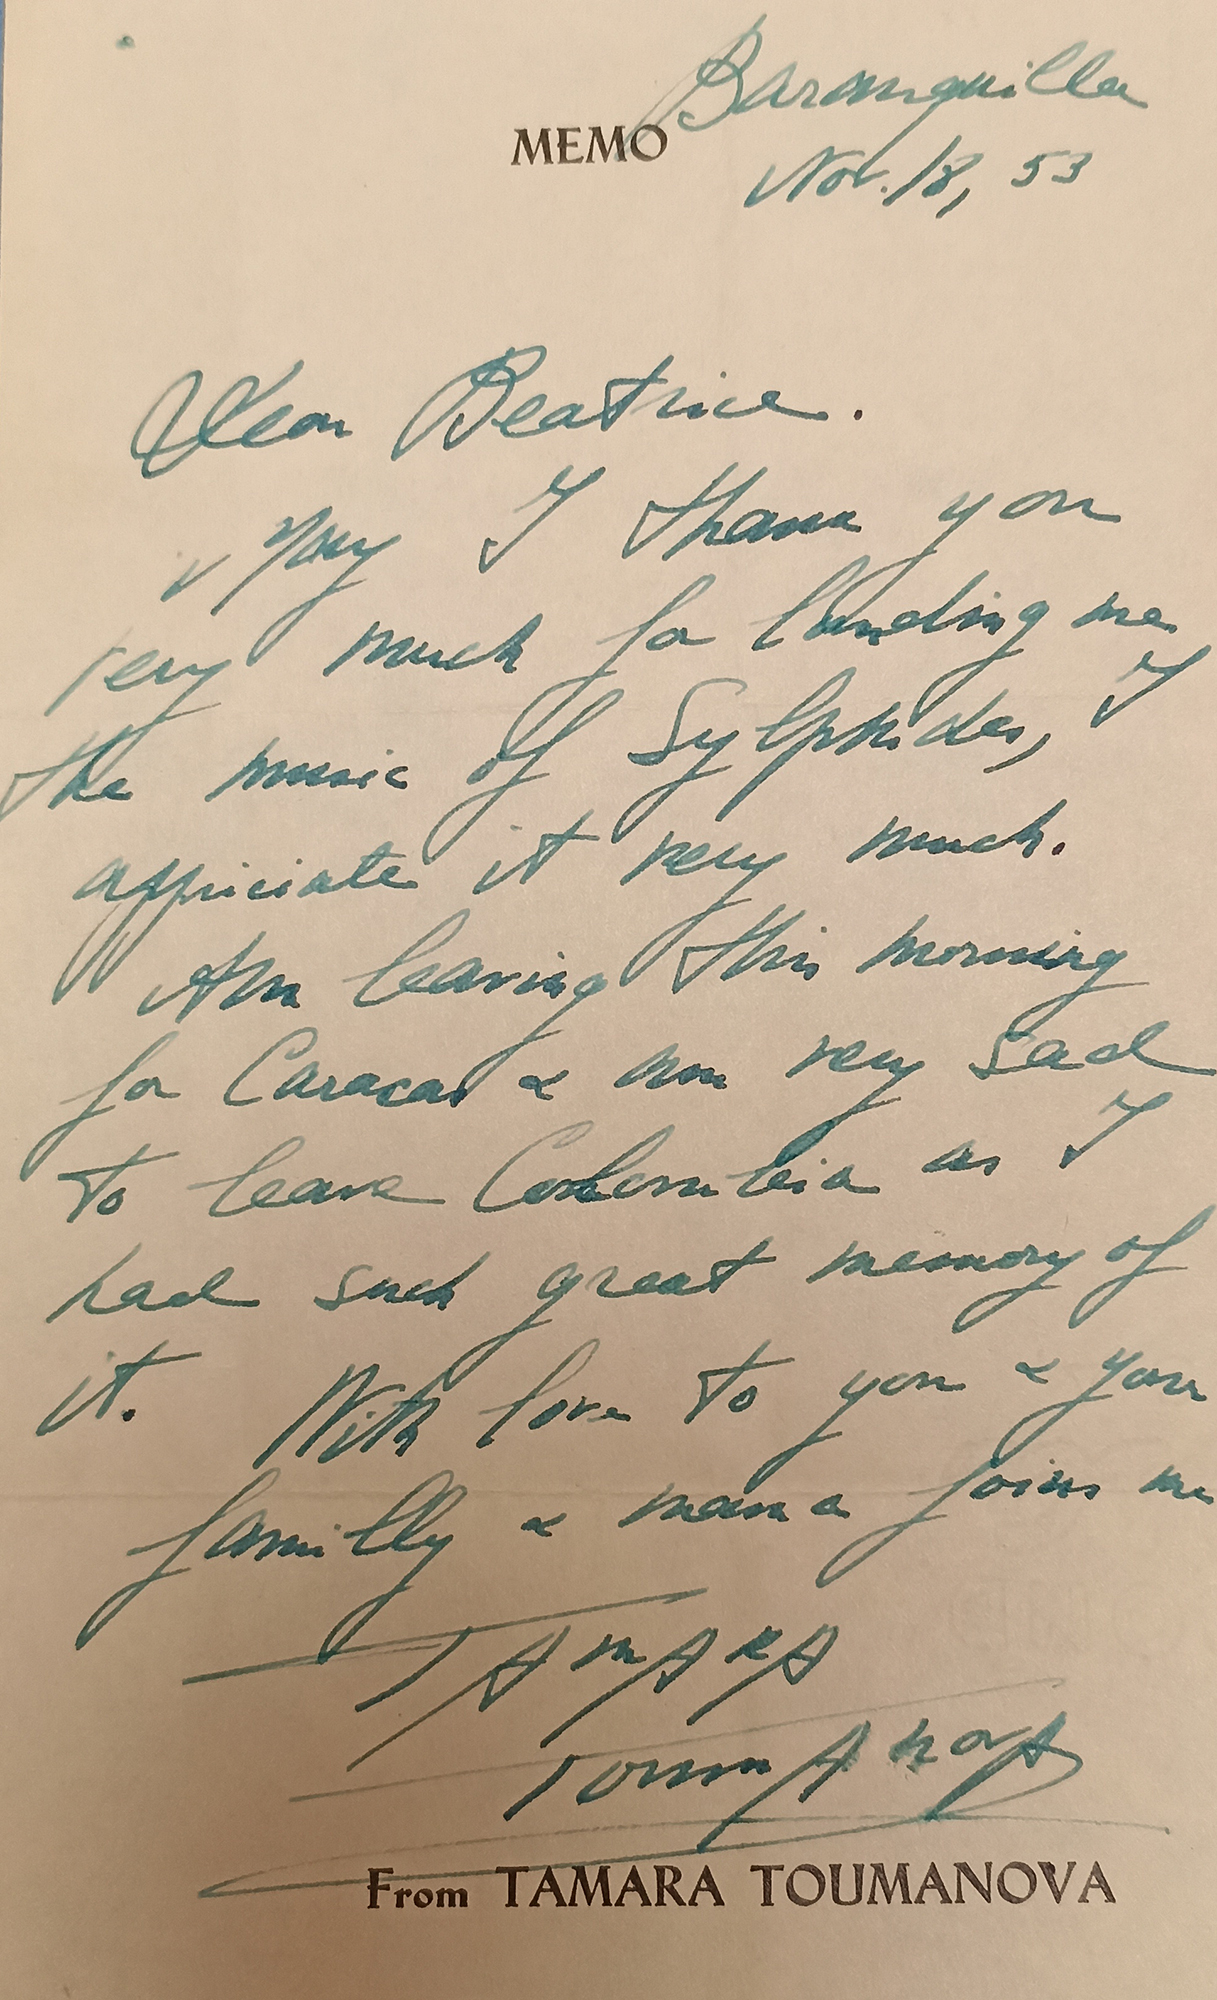 Baranquilla
MEMO
Nov. 18, 53
Dear Beatrice.
May I thank you
very much for landing me
the music of Sylphides, I
appriciate it very much.
Am leaving this morning
for Caracas & am very sad
to leave Colombia as I
had such great memory of
it. With love to you & your
familly & mama joins me
TAMARA
ToumANovA
From TAMARA TOUMANOVA